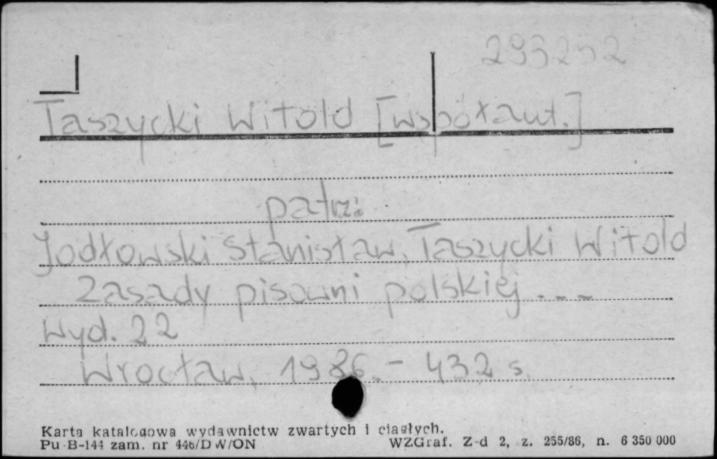 295252
Taszycki Witold [współaut.]
patrz:
Jodłowski Stanisław, Taszycki Witold
Zasady pisowni polskiej ...
Wyd. 22
Wrocław, 1986. - 432 s.
Karta katalogowa wydawnictw zwartych i ciągłych.
Pu-B-144 zam. nr 446/DW/ON WZGraf. Z-d 2, z. 255/86, n. 6 350 000